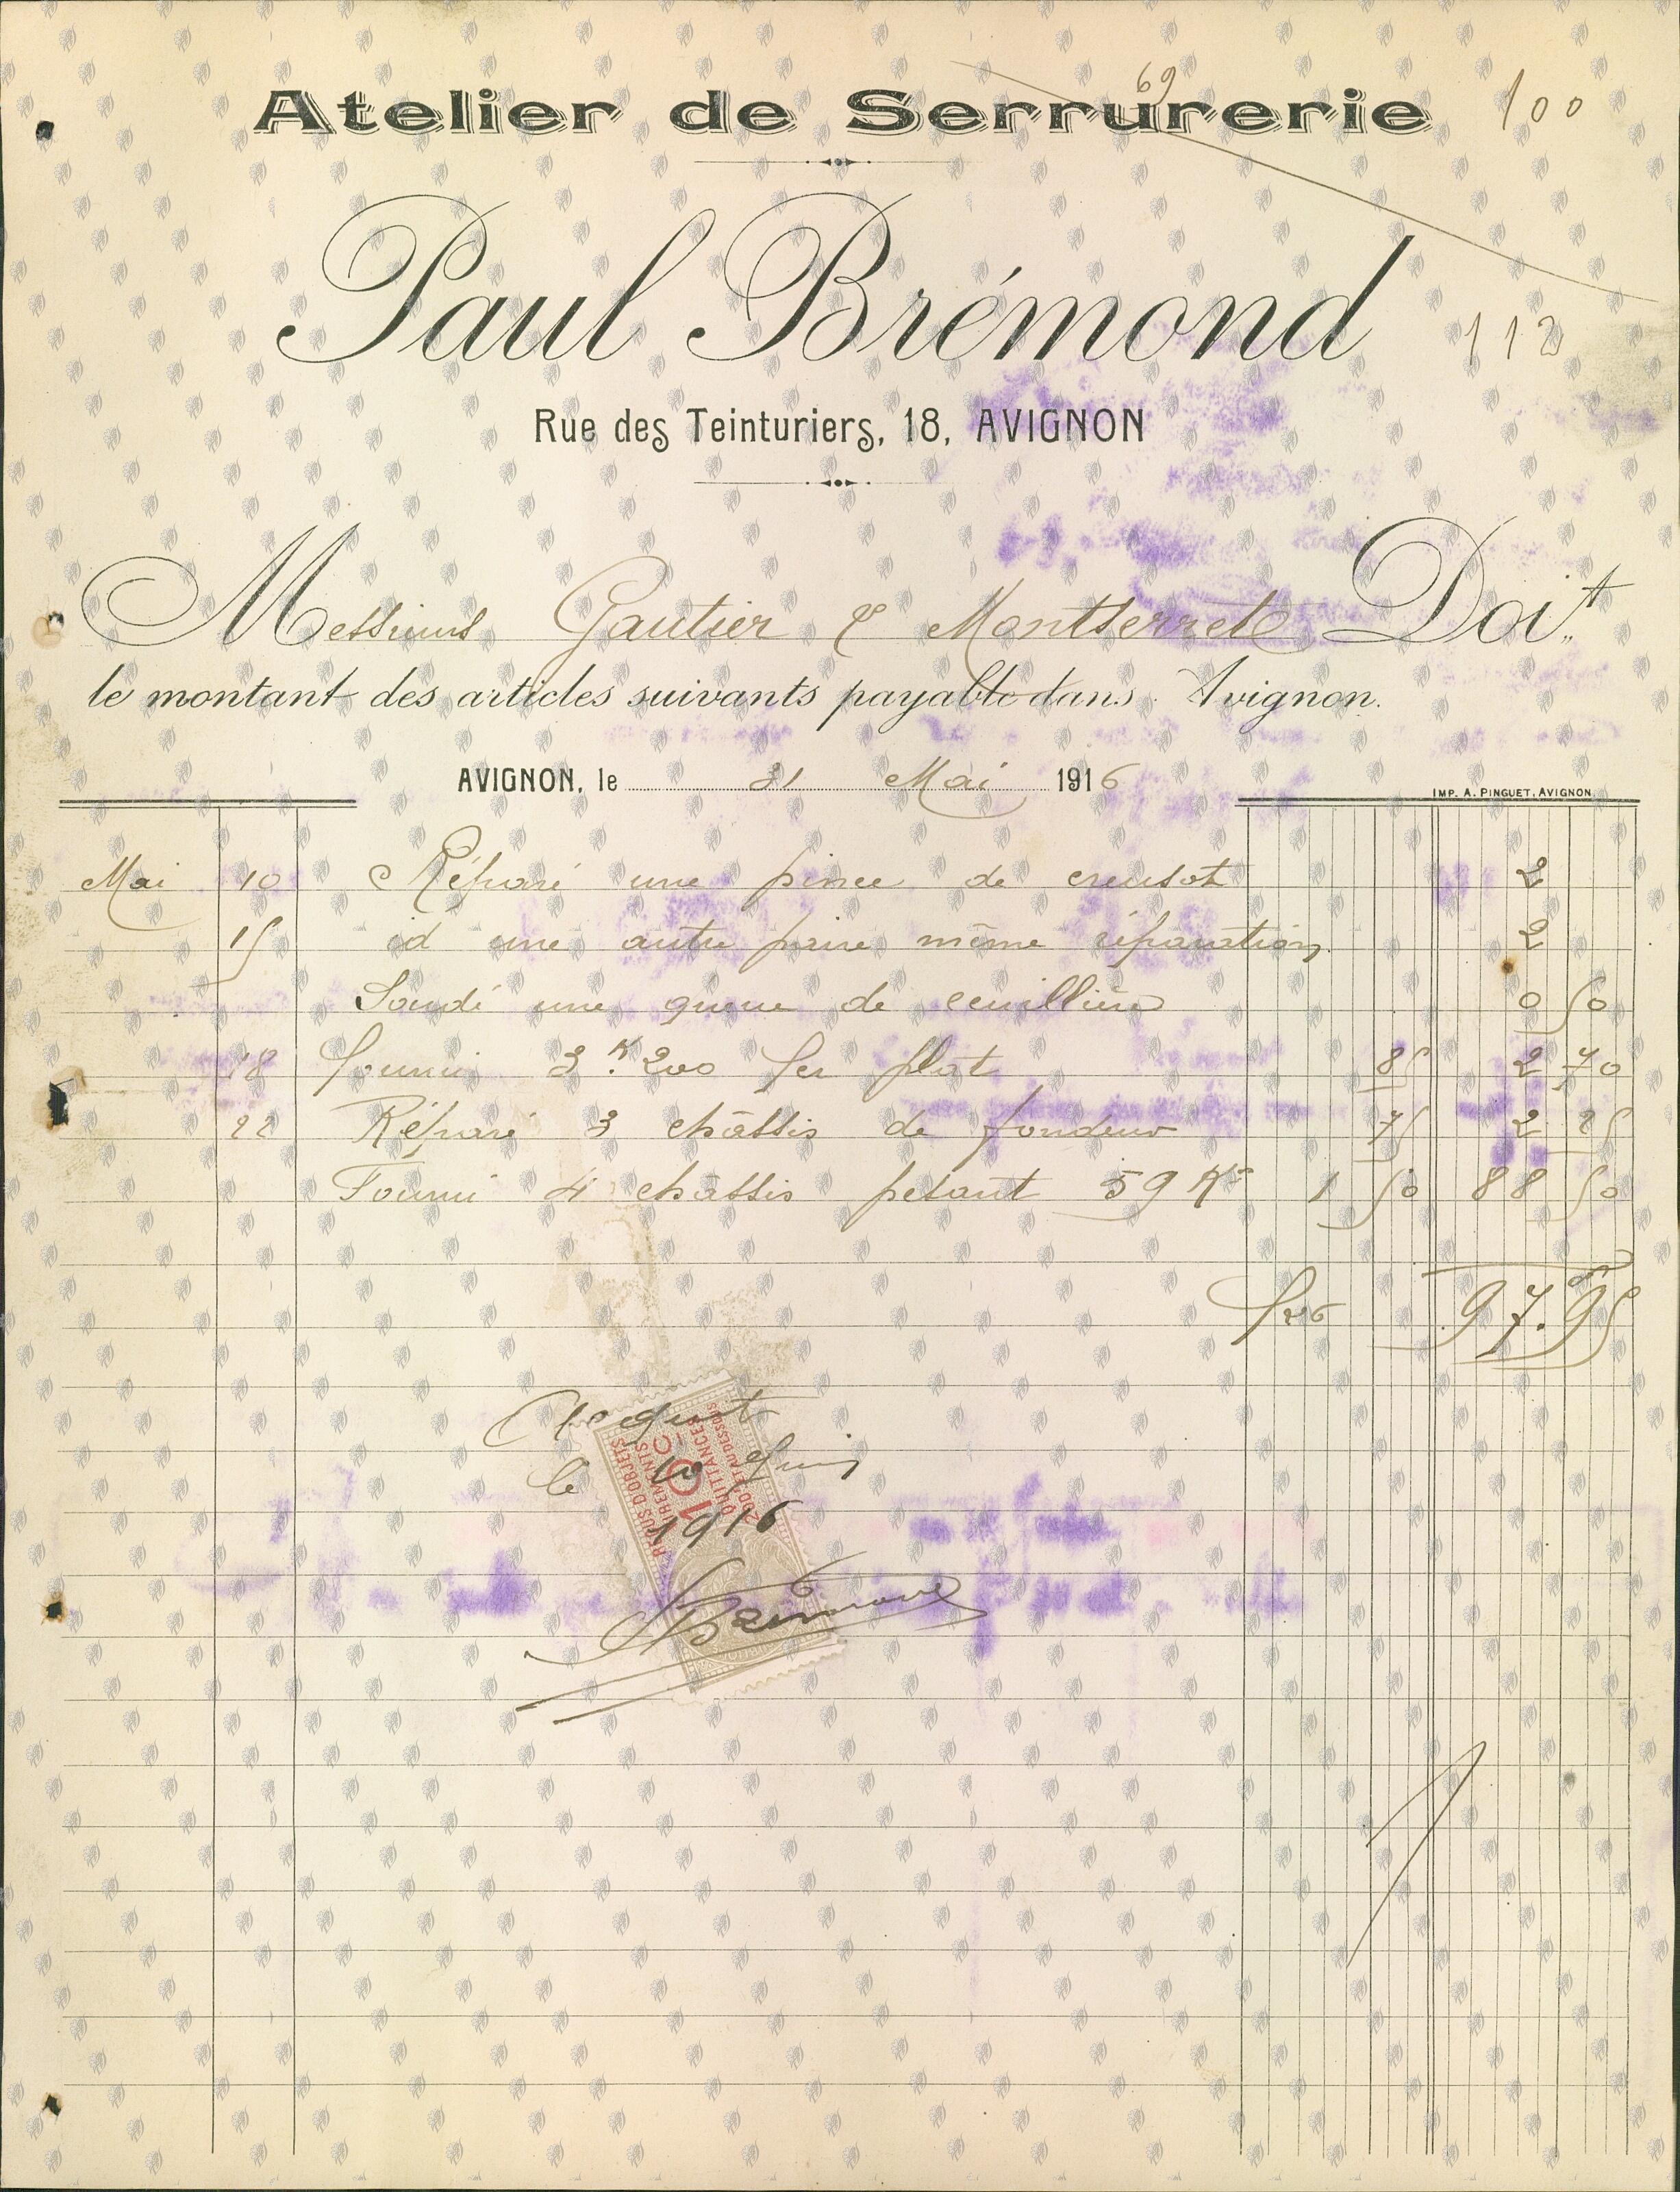 69
Atelier de Serrurerie 100
Paul Brémond
112
Rue des Teinturiers, 18, AVIGNON
Messieurs Gautier & Montserret Doit
le montant des articles suivants payable dans Avignon.
AVIGNON, le 31 Mai 1916
IMP. A. PINGUET, AVIGNON
Mai 10 Réparé une pince de creusot 2
15 id une autre paire même réparation 2
Soudé une queue de ceuillière 0 50
18 fourni 3 K. 200 fer plat 85 2 70
22 Réparé 3 châssis de fondeur 75 2 25
Fourni 4 chassis pesant 59 Kos 1 50 88 50
frs 97.95
Acquit
le 10 Juin
1916
REÇUS D'OBJETS
10 C
QUITTANCES
Bremond